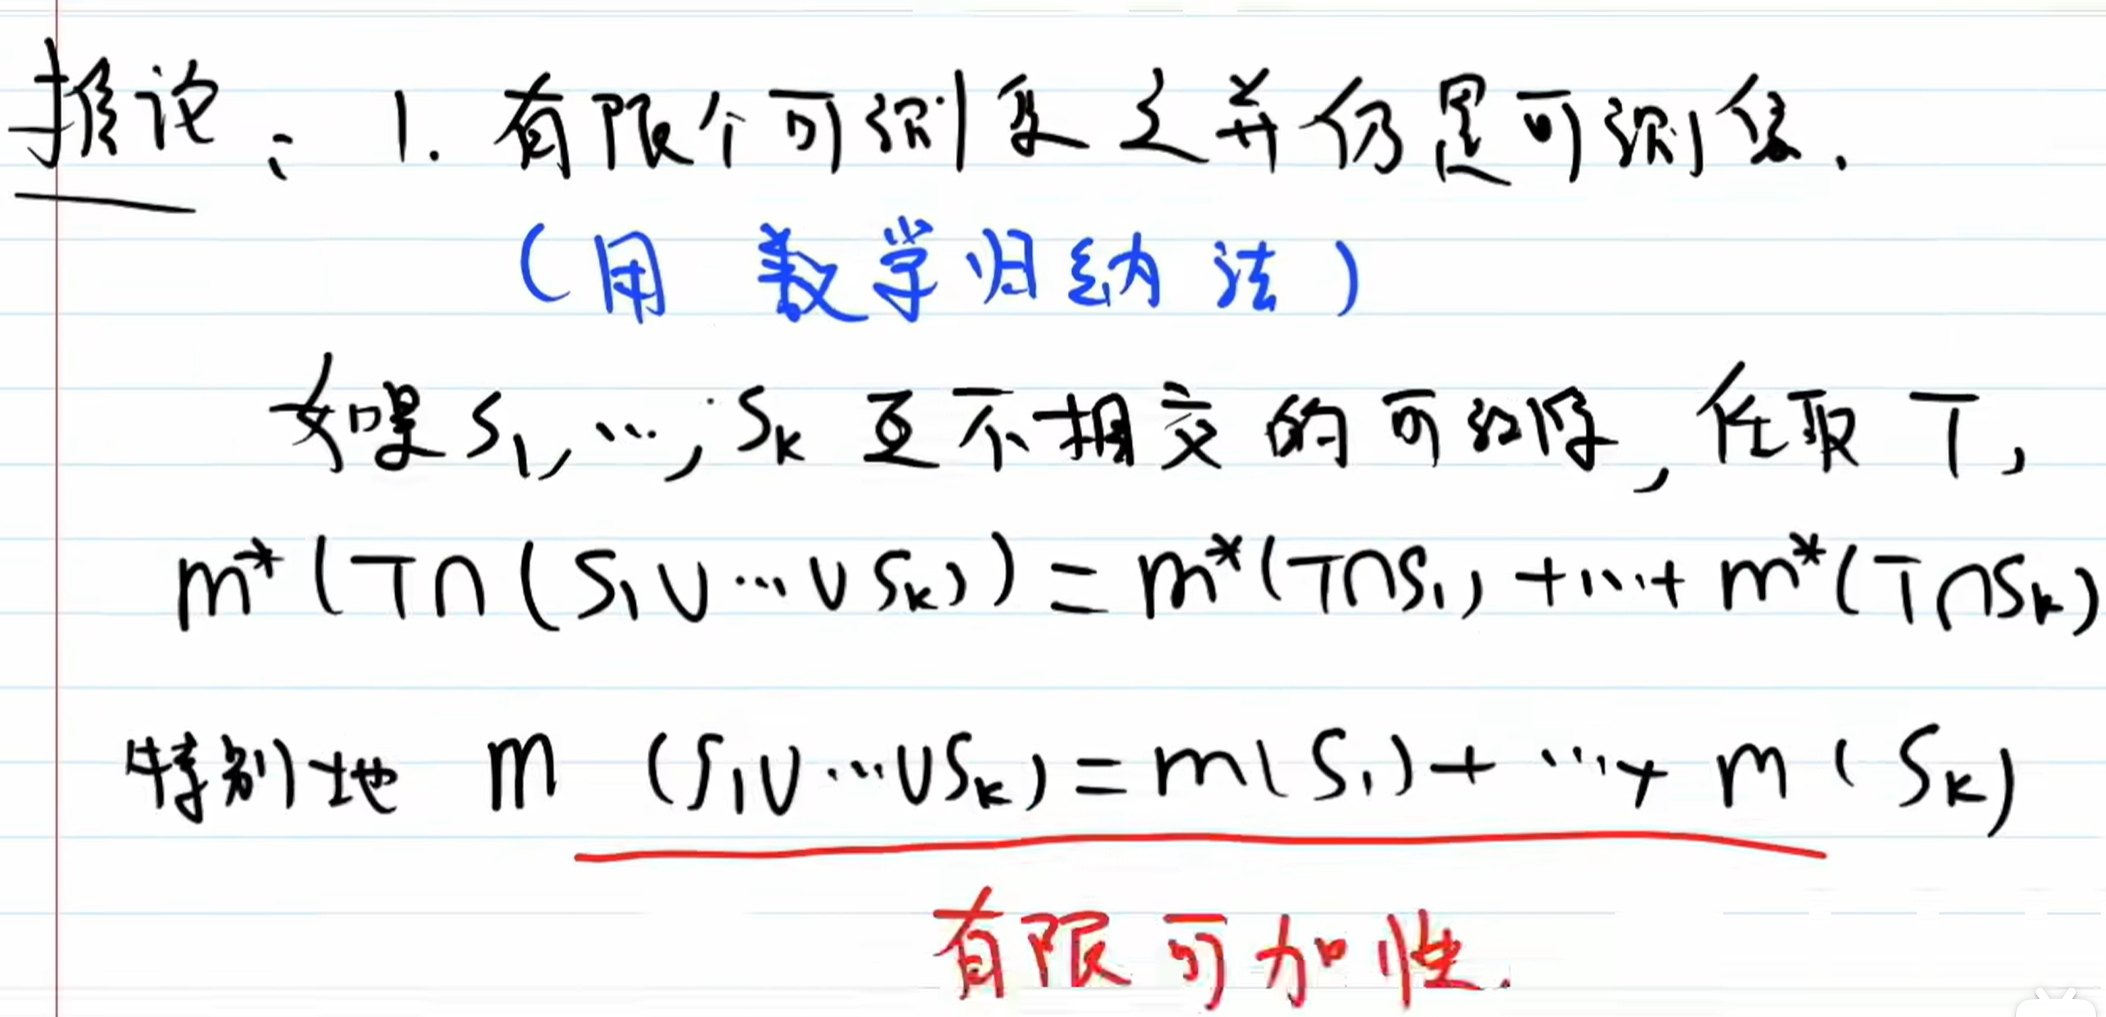 推论: 1. 有限个可测集之并仍是可测集.
(用 数学归纳法)
如果 S₁, ..., Sₖ 互不相交的可测集, 任取 T,
m*(T∩(S₁∪...∪Sₖ)) = m*(T∩S₁) + ... + m*(T∩Sₖ)
特别地 m (S₁∪...∪Sₖ) = m(S₁) + ... + m(Sₖ)
有限可加性.